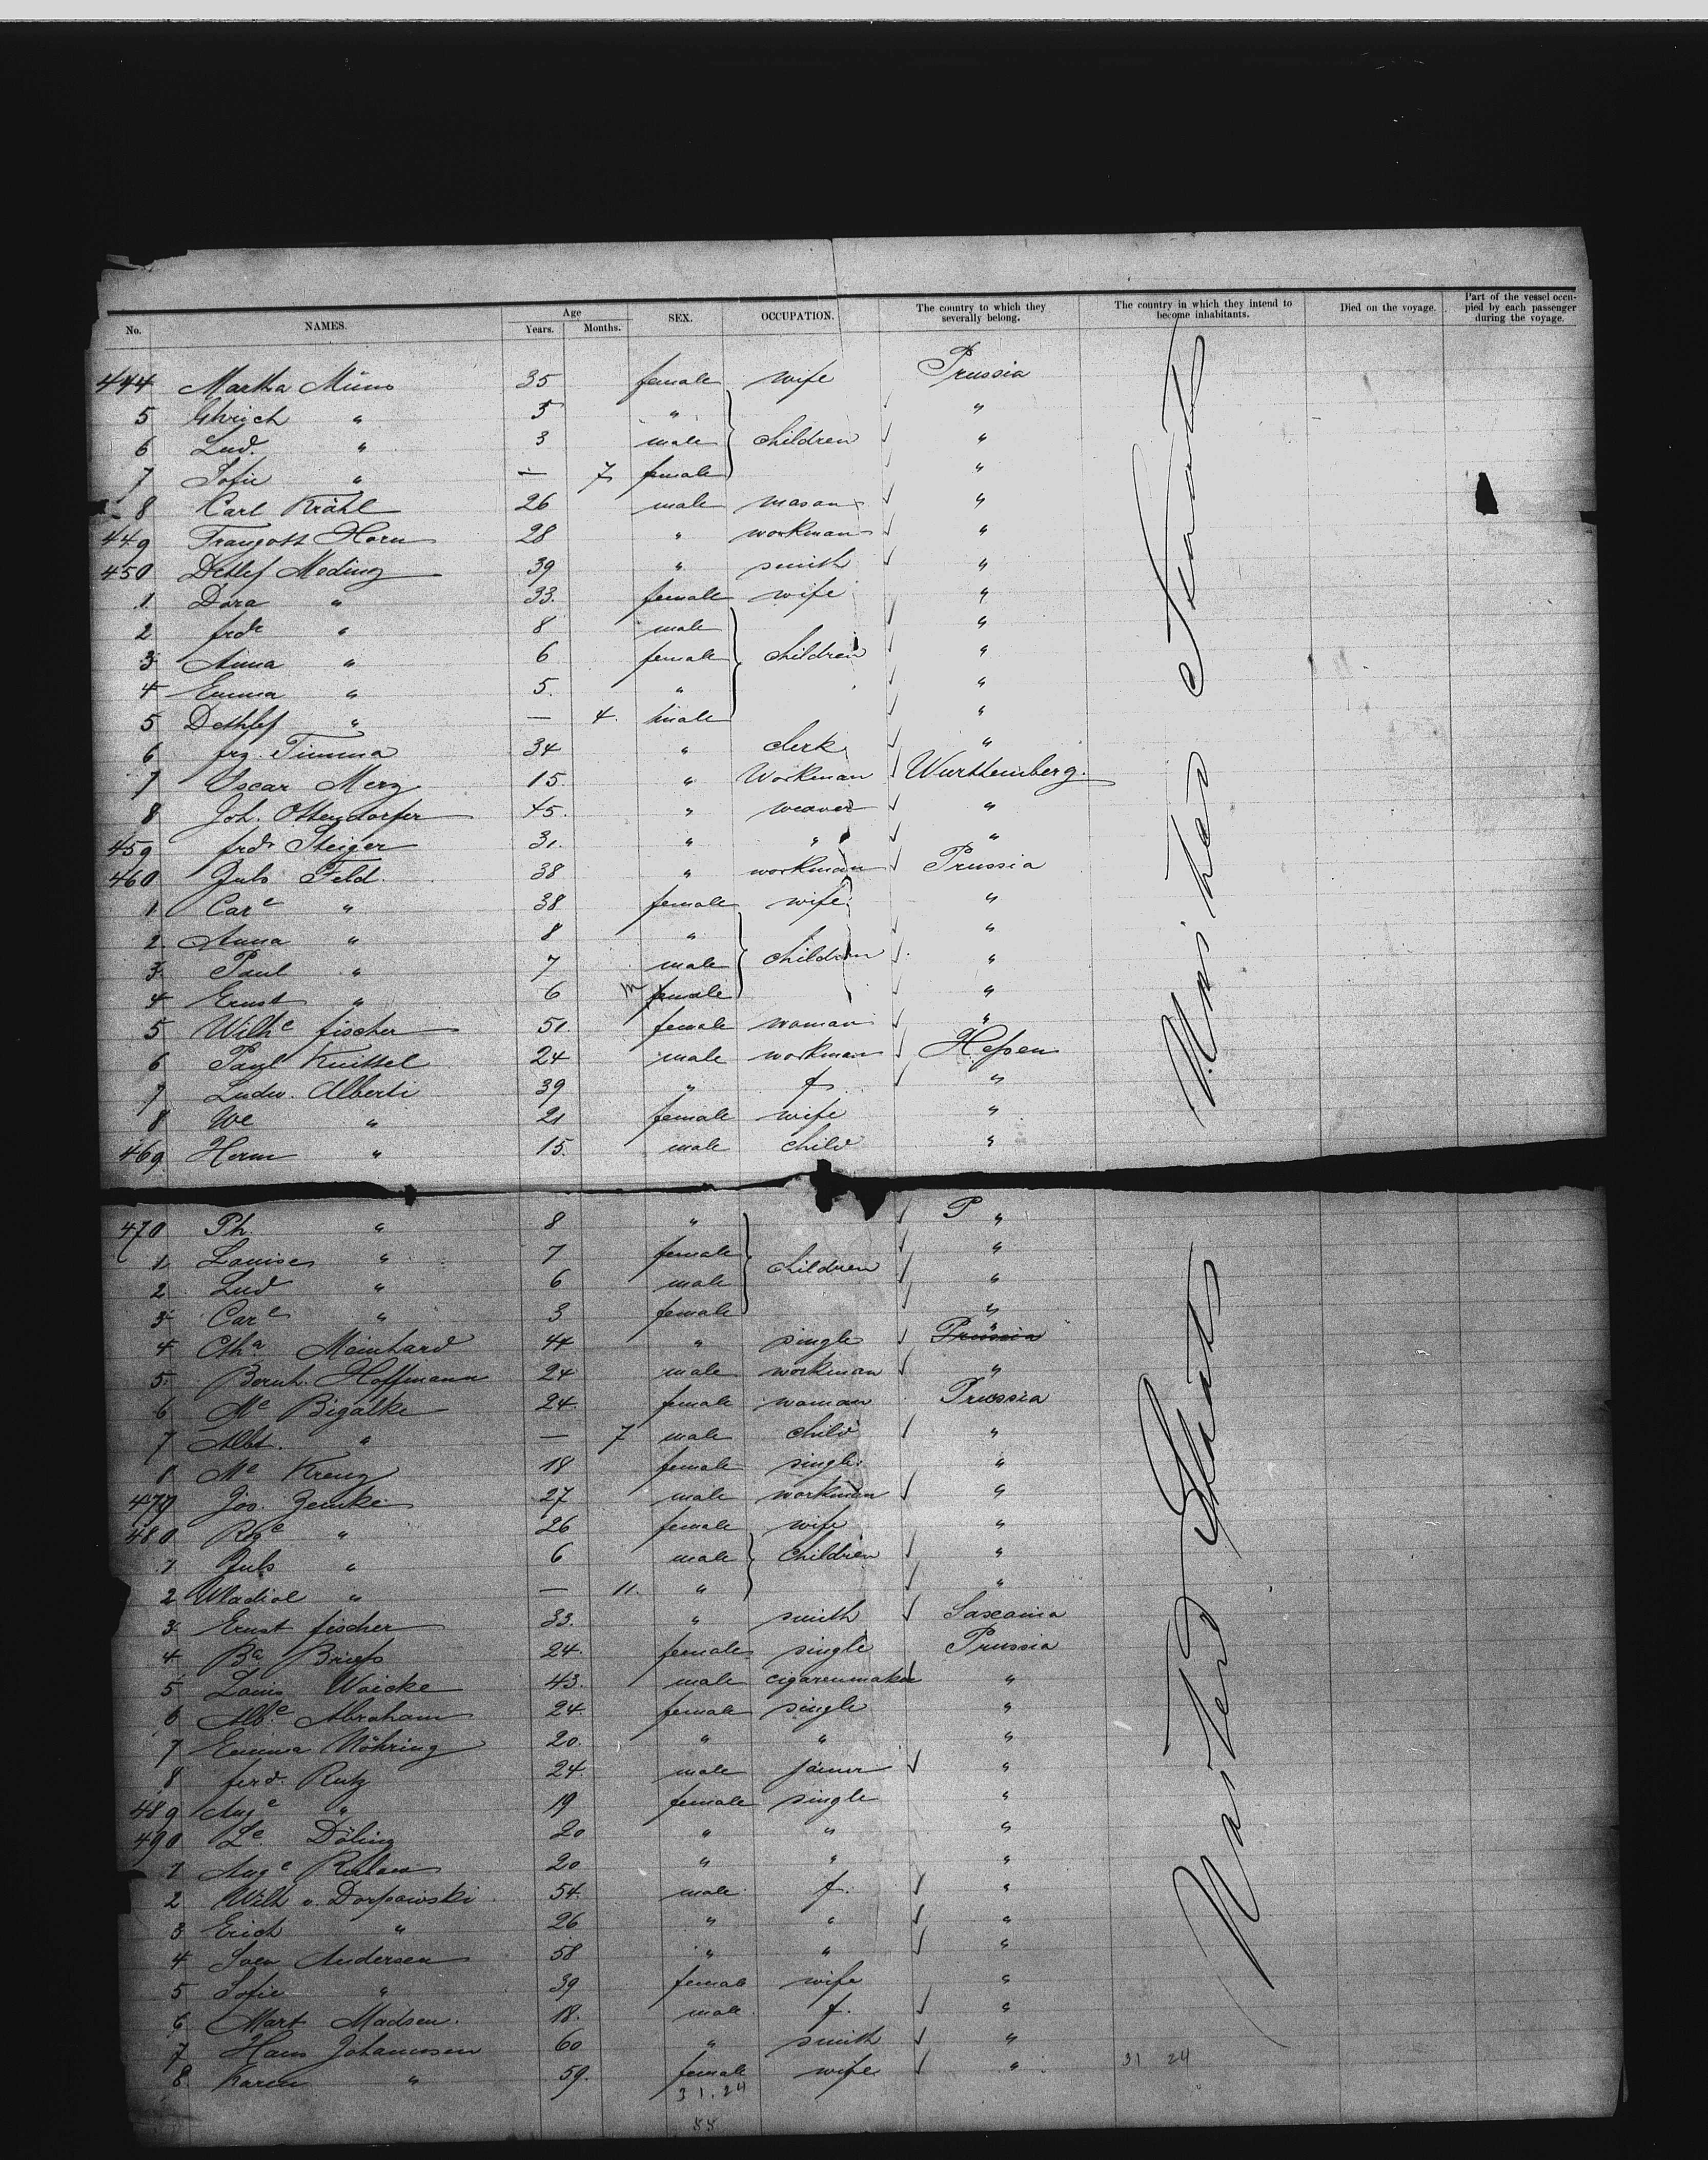 No. NAMES. Age Years. Months. SEX. OCCUPATION. The country to which they severally belong. The country in which they intend to become inhabitants. Died on the voyage. Part of the vessel occupied by each passenger during the voyage.
444 Martha 35 female wife Prussia
5 " 5 " "
6 Lud. " 3 male children "
7 Sofie " — 7 female "
8 Carl Krähl 26 male mason "
449 Traugott Horn 28 " workman "
450 Detlef Meding 39 " smith "
1 Dora " 33. female wife "
2 frdr " 8 male "
3 Anna " 6 female children "
4 Emma " 5. " "
5 Dethlef " — 4. male "
6 frz. Timma 34 " clerk "
7 Oscar Merz 15. " Workman Wurttemberg.
8 Joh. Ottendorfer 45. " weaver "
459 frdr Steiger 31. " " "
460 Juls Feld. 38 " workman Prussia
1 Care " 38 female wife "
2 Anna " 8 " "
3 Paul " 7 male children "
4 Ernst " 6 m female "
5 Wilhe fischer 51. female woman "
6 Paul Knittel 24 male workman Hessen
7 Ludw. Alberti 39 " f "
8 We " 21 female wife "
469 Herm " 15. male child "
470 Ph. " 8 " P "
1 Louise " 7 female "
2 Lud " 6 male children "
3 Care " 3 female "
4 Ctha Meinhard 44 " single Prussia "
5. Bernh. Hoffmann 24 male workman "
6 Me Bigalke 24 female woman Prussia
7 Albt. " — 7 male child "
8 Me Kreuz 18 female single "
479 Jos. Zemke 27 male workman "
480 " 26 female wife "
1 Juls " 6 male children "
2 Wladiol " — 11. " "
3 Ernst fischer 33. " smith Saxonia
4 Ba Briefs 24. female single Prussia
5 Louis Woicke 43. male cigarenmaker "
6 Albe Abraham 24 female single "
7 Emma Möhring 20. " " "
8 ferd. Rutz 24. male joiner "
489 Auge " 19 female single "
490 Le Döling 20 " " "
1 Auge 20 " " "
2 Wilh v. Dorpowski 54. male f. "
3 Erich " 26 " " "
4 Sven Andersen 58 " " "
5 Sofie " 39 female wife "
6 Mart Madsen. 18. male. f. "
7 Hans Johannsen 60 " smith "
8 Karen " 59. female wife "
31 24
31.24
55
United States
United States